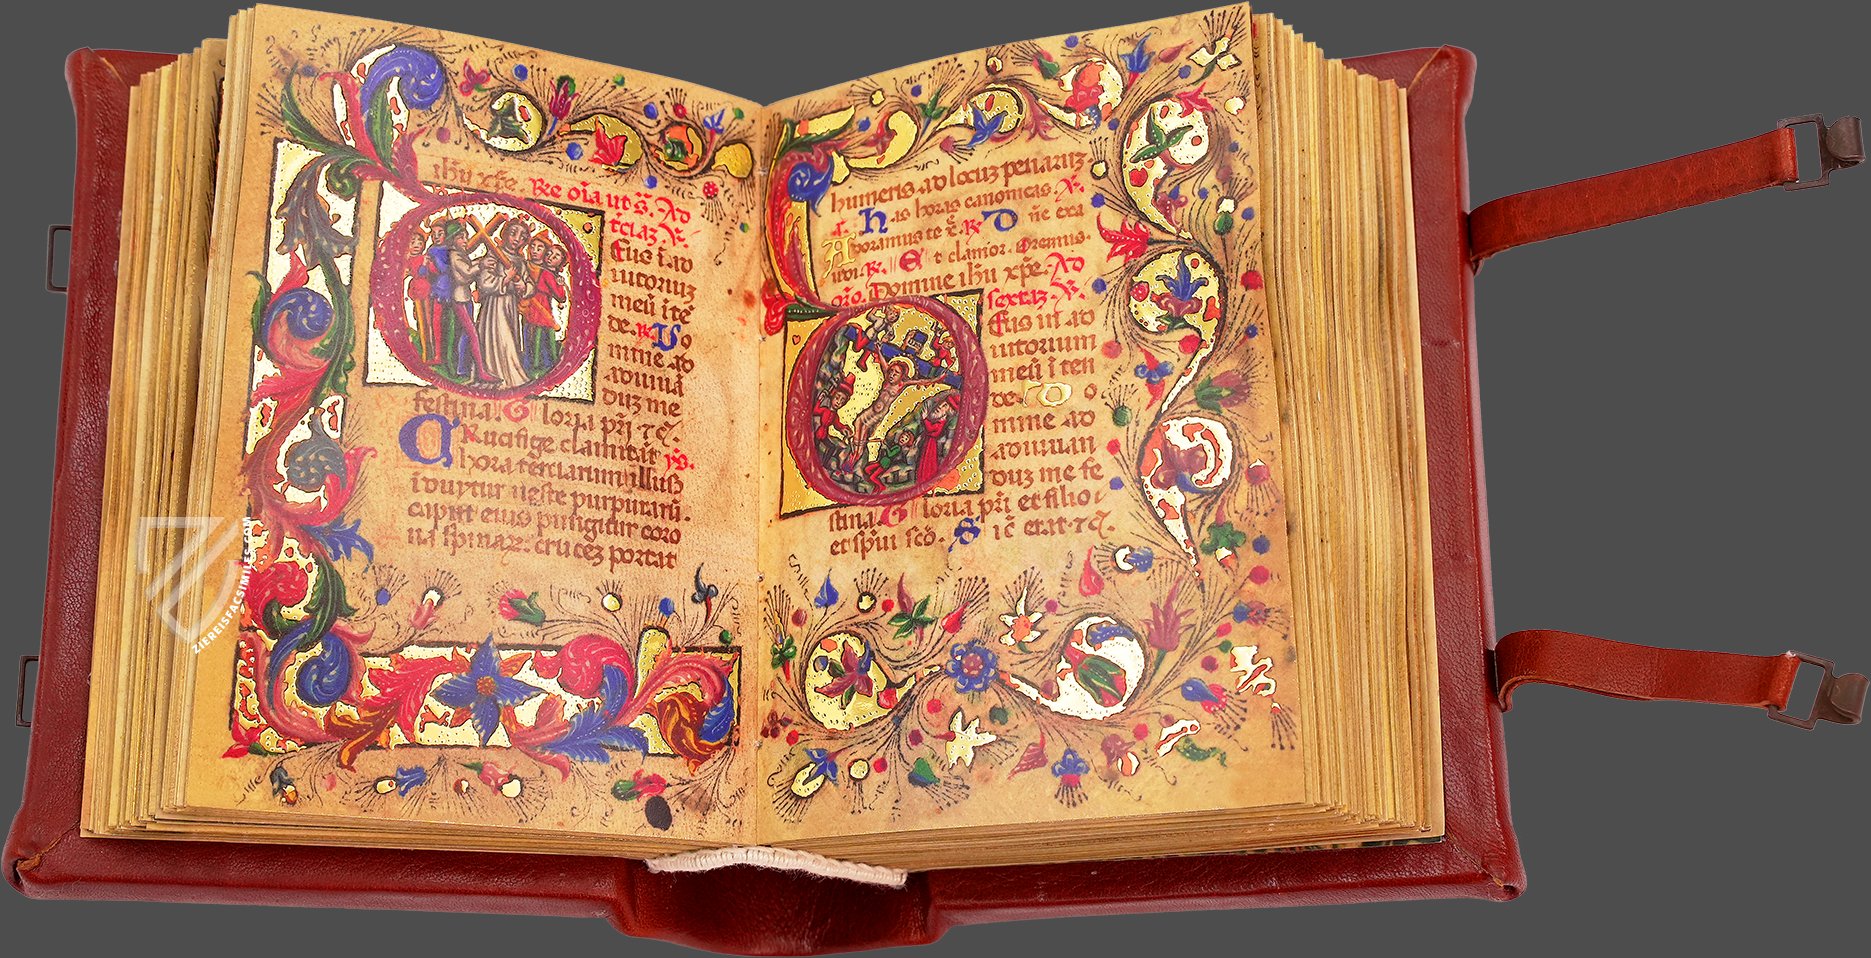 ihū xp̄e. Re oīa ut s̄. Ad
tēiaz. V̄.
Eus ī ad
iutoriuz
meū ītē
de. R. D o
mine ad
adiuuā
duz me
festina. G loria pr̄i ⁊c̄.
CRucifige clamitāt
hora terciarum illuso
iduytur ueste purpurarū.
caput eius pungitur coro
na spinaz. crucez portat
humeris ad locuz penaruz
has horas canonicas. V̄.
Adoramus te x̄. R. D n̄e exa
udi. R. Et clamor. Oremus.
or̄o. Domine ihū xp̄e. Ad
sextaz. V̄.
Eus in ad
iutorium
meū ī ten
de. D o
mine ad
adiuuan
duz me fe
stina. G loria pr̄i et filio
et sp̄ui scō. S ic̄ erat ⁊c̄.
ZIEREISFACSIMILES.COM